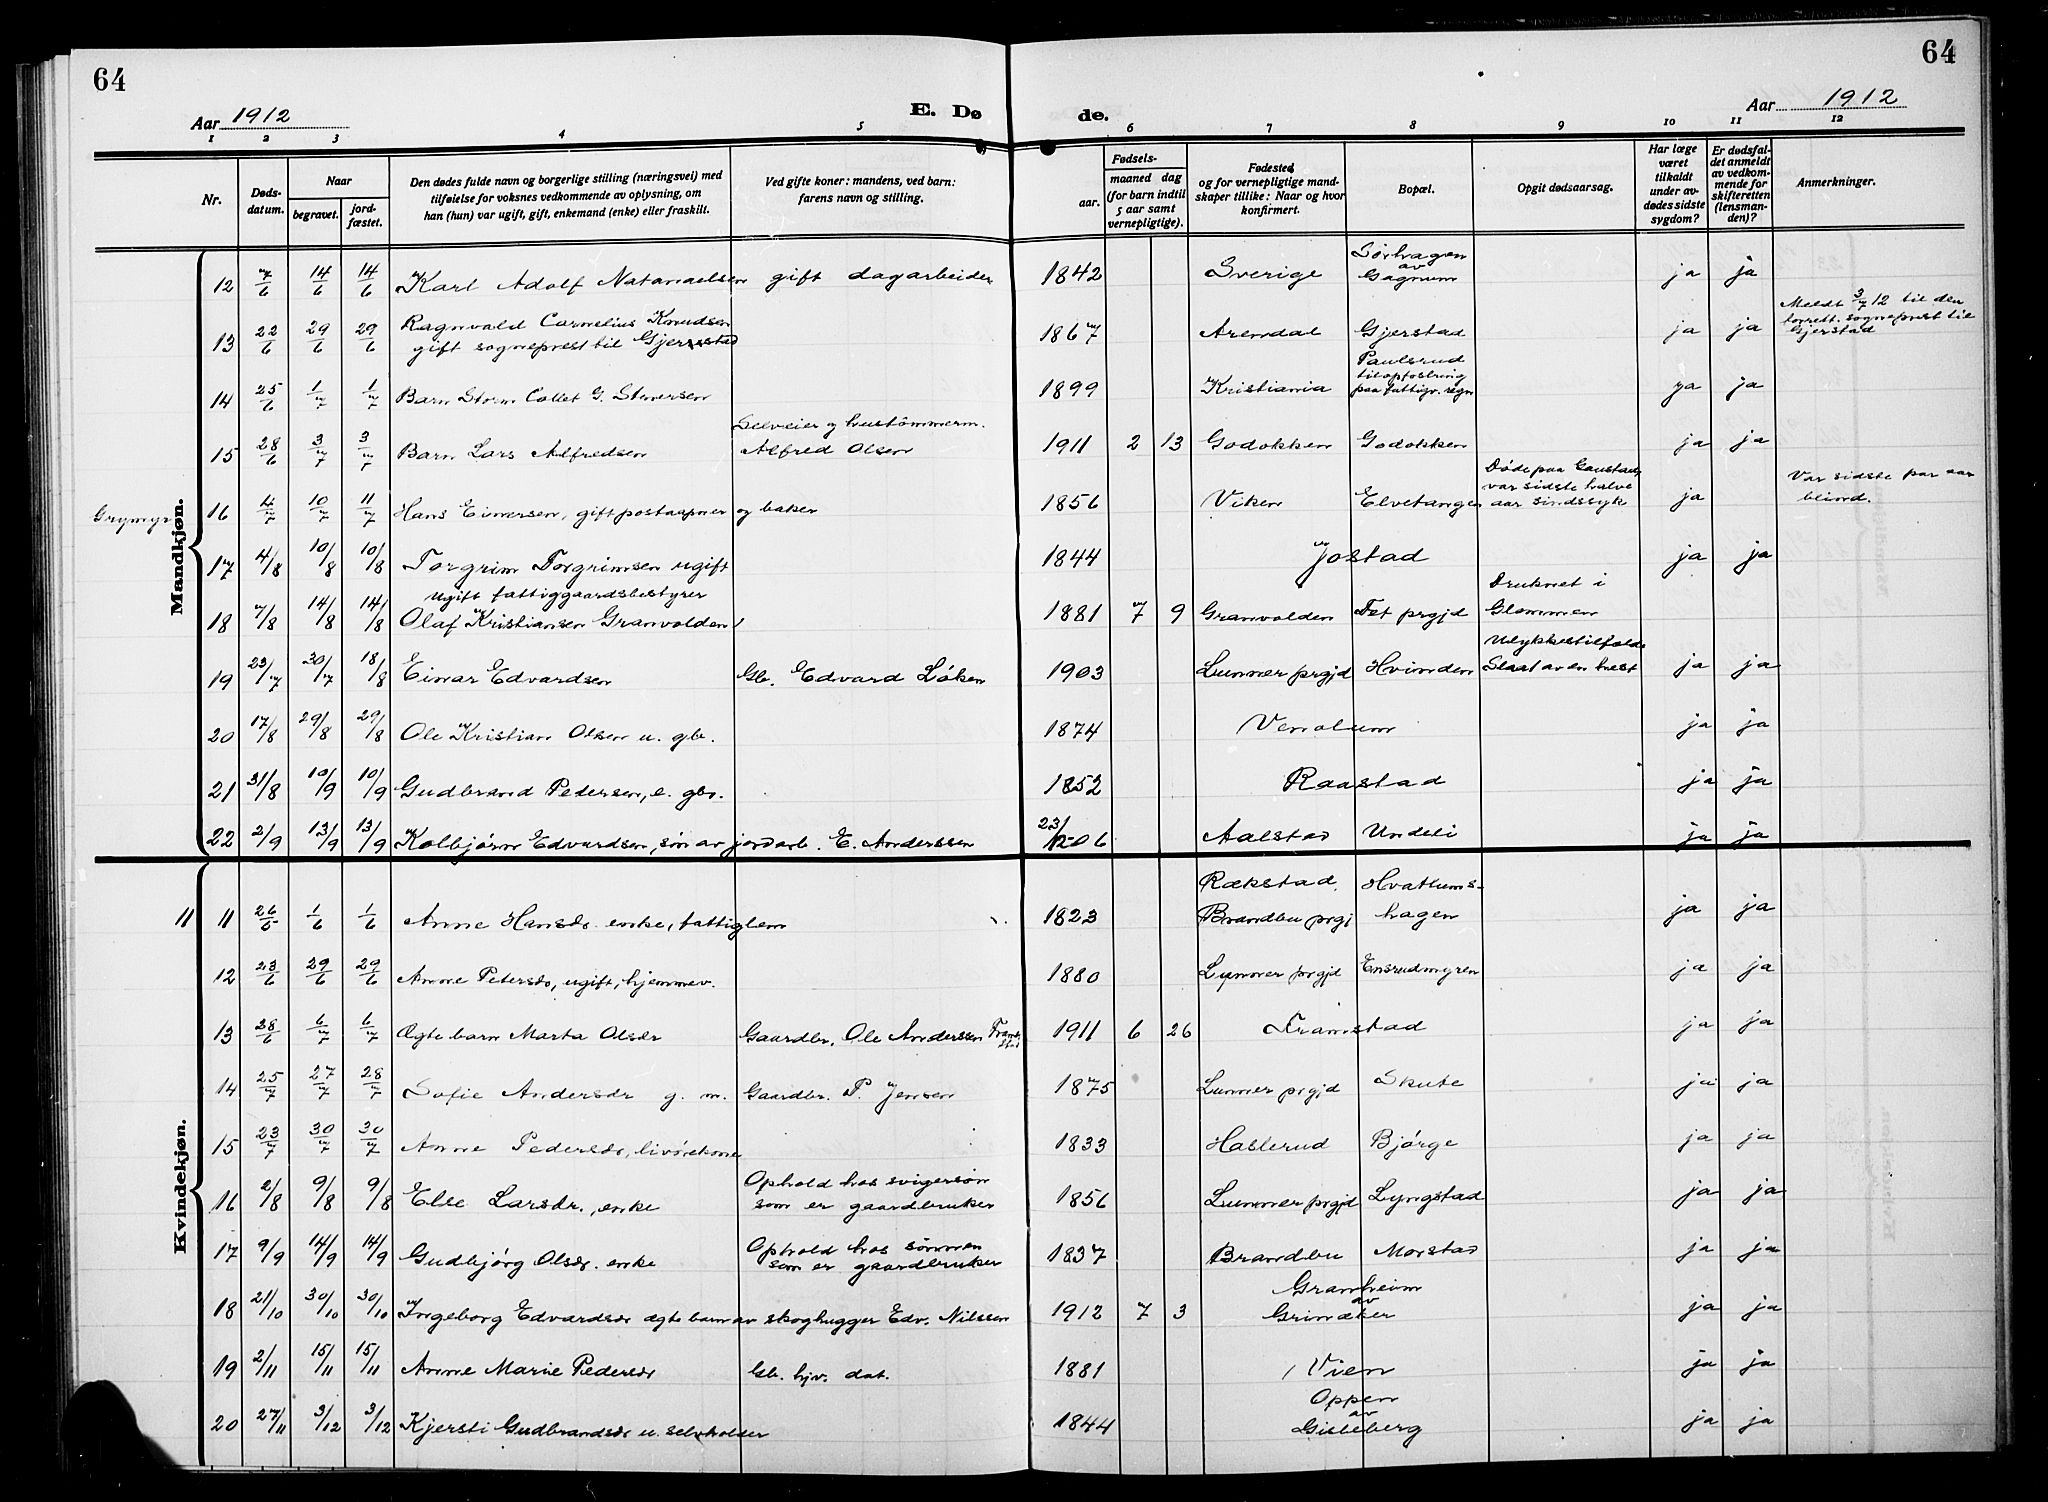 64
64
Aar 1912
E. Dø
de.
Aar 1912
1 2 3 4 5 6 7 8 9 10 11 12
Nr.
Døds-
datum.
Naar
begravet.
jord-
fæstet.
Den dødes fulde navn og borgerlige stilling (næringsvei) med
tilføielse for voksnes vedkommende av oplysning, om
han (hun) var ugift, gift, enkemand (enke) eller fraskilt.
Ved gifte koner: mandens, ved barn:
farens navn og stilling.
Fødsels-
aar.
maaned dag
(for barn indtil
5 aar samt
vernepligtige).
Fødested,
og for vernepligtige mand-
skaper tillike: Naar og hvor
konfirmert.
Bopæl.
Opgit dødsaarsag.
Har læge
været
tilkaldt
under av-
dødes sidste
sygdom?
Er dødsfal-
det anmeldt
av vedkom-
mende for
skifteretten
(lensman-
den)?
Anmerkninger.
Mandkjøn.
12 7/6 14/6 14/6 Karl Adolf Natanaelsen gift dagarbeider 1842 Sverige Sørhagen av Gagnum ja ja
13 22/6 29/6 29/6 Ragnvald Cornelius Knudsen gift sogneprest til Gjerestad 1867 Arendal Gjerstad ja ja Meldt 3/7 12 til den forrett. sogneprest til Gjerstad
14 25/6 1/7 1/7 Barn Storm Collet G. Stenersen 1899 Kristiania Paulsrud til opfostring paa fattigv. regn ja ja
15 28/6 3/7 3/7 Barn Lars Alfredsen Selveier og hustømmerm. Alfred Olsen 1911 2 13 Godokken Godokken ja ja
Grymyr 16 4/7 10/7 11/7 Hans Einersen, gift postaapner og baker 1856 Viken Elvetangen Døde paa Gaustad, var sidste halve aar sindssyk ja Var sidste par aar blind.
17 4/8 10/8 10/8 Torgrim Torgrimsen ugift 1844 Jostad ja ja
18 7/8 14/8 14/8 ugift fattiggaardsbestyrer Olaf Kristiansen Granvolden 1881 7 9 Granvolden Fet prgjd Druknet i Glommen
19 23/7 30/7 18/8 Einar Edvardsen Gb. Edvard Løken 1903 Lunner prgjd Hvinden Ulykkestilfelde Slaat av en hest ja ja
20 17/8 29/8 29/8 Ole Kristian Olsen u. gb. 1874 Venolum ja ja
21 31/8 10/9 10/9 Gudbrand Pedersen, e. gbr. 1852 Raastad ja ja
22 2/9 13/9 13/9 Kolbjørn Edvardsen, søn av jordarb. E. Anderssen 23/12 06 Aalstad Undeli ja ja
Kvindekjøn.
11 11 26/5 1/6 1/6 Anne Hansdr. enke, fattiglem 1823 Rækstad, Brandbu prgj Hvattumshagen ja ja
12 23/6 29/6 29/6 Anne Petersdr, ugift, hjemmev. 1880 Lunner prgjd Ensrudmyren ja ja
13 28/6 6/7 6/7 Ægte barn Marta Olsdr Gaardbr. Ole Anderssen Framstad 1911 6 26 Framstad ja ja
14 25/7 27/7 28/7 Sofie Andersdr g. m. Gaardbr. P. Jensen 1875 Lunner prgjd Skute ja ja
15 23/7 30/7 30/7 Anne Pedersdr, livørekone 1833 Haslerud Bjørge ja ja
16 2/8 9/8 9/8 Else Larsdr., enke Ophold hos svigersøn som er gaardbruker 1856 Lunner prgjd Lyngstad ja ja
17 9/9 14/9 14/9 Gudbjørg Olsdr. enke Ophold hos sønnen som er gaardbruker 1837 Brandbu Morstad ja ja
18 21/10 30/10 30/10 Ingeborg Edvardsdr ægte barn av skoghugger Edv. Nilssen 1912 7 3 Granheim av Grinaker ja ja
19 2/11 15/11 15/11 Anne Marie Pedersdr Gb. hjv. dat. 1881 Vien ja ja
20 27/11 3/12 3/12 Kjersti Gudbrandsdr u. selvholder 1844 Oppen av Gisleberg ja ja